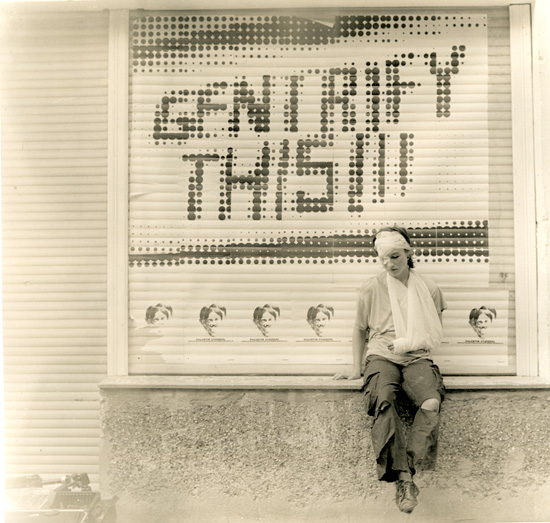 GENTRIFY
THIS!!!